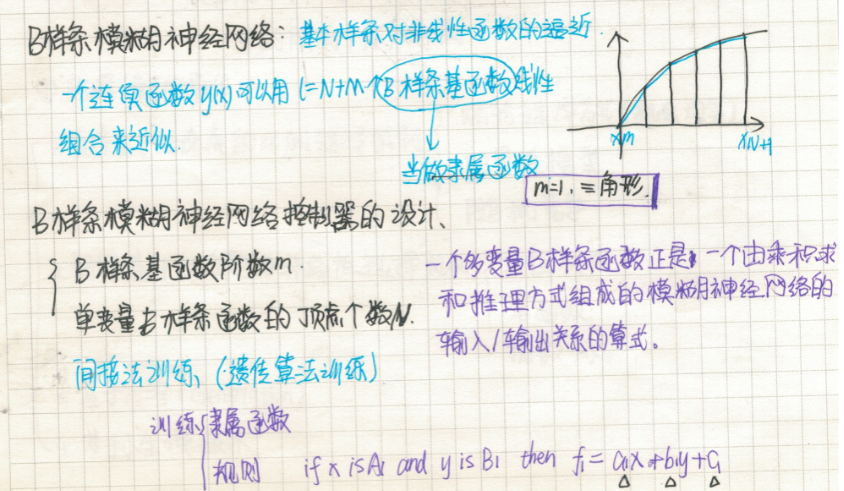 B样条模糊神经网络：基本样条对非线性函数的逼近.
一个连续函数y(x)可以用l=N+m个B样条基函数线性
组合来近似.
当做隶属函数
xm
xN+1
m=1,三角形.
B样条模糊神经网络控制器的设计、
B样条基函数阶数m.
单变量B样条函数的顶点个数N.
一个多变量B样条函数正是一个由乘积求
和推理方式组成的模糊神经网络的
输入/输出关系的算式。
间接法训练、(遗传算法训练)
训练
隶属函数
规则 if x is A1 and y is B1 then f1 = a1x+b1y+c1